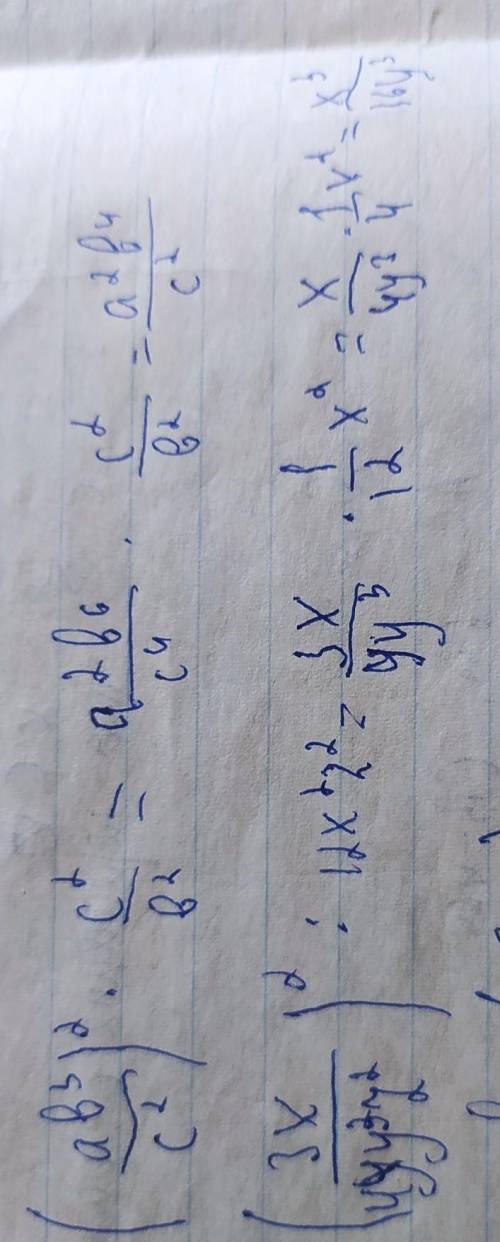 (ab³/c²)² · c²/b² = a²b⁶/c⁴ · c²/b² = a²b⁴/c²
(3x/)² : 12x²y² = 3x/4y³ · 1/12 x² = x/4y³ · 1/4 x² = x³/16y³